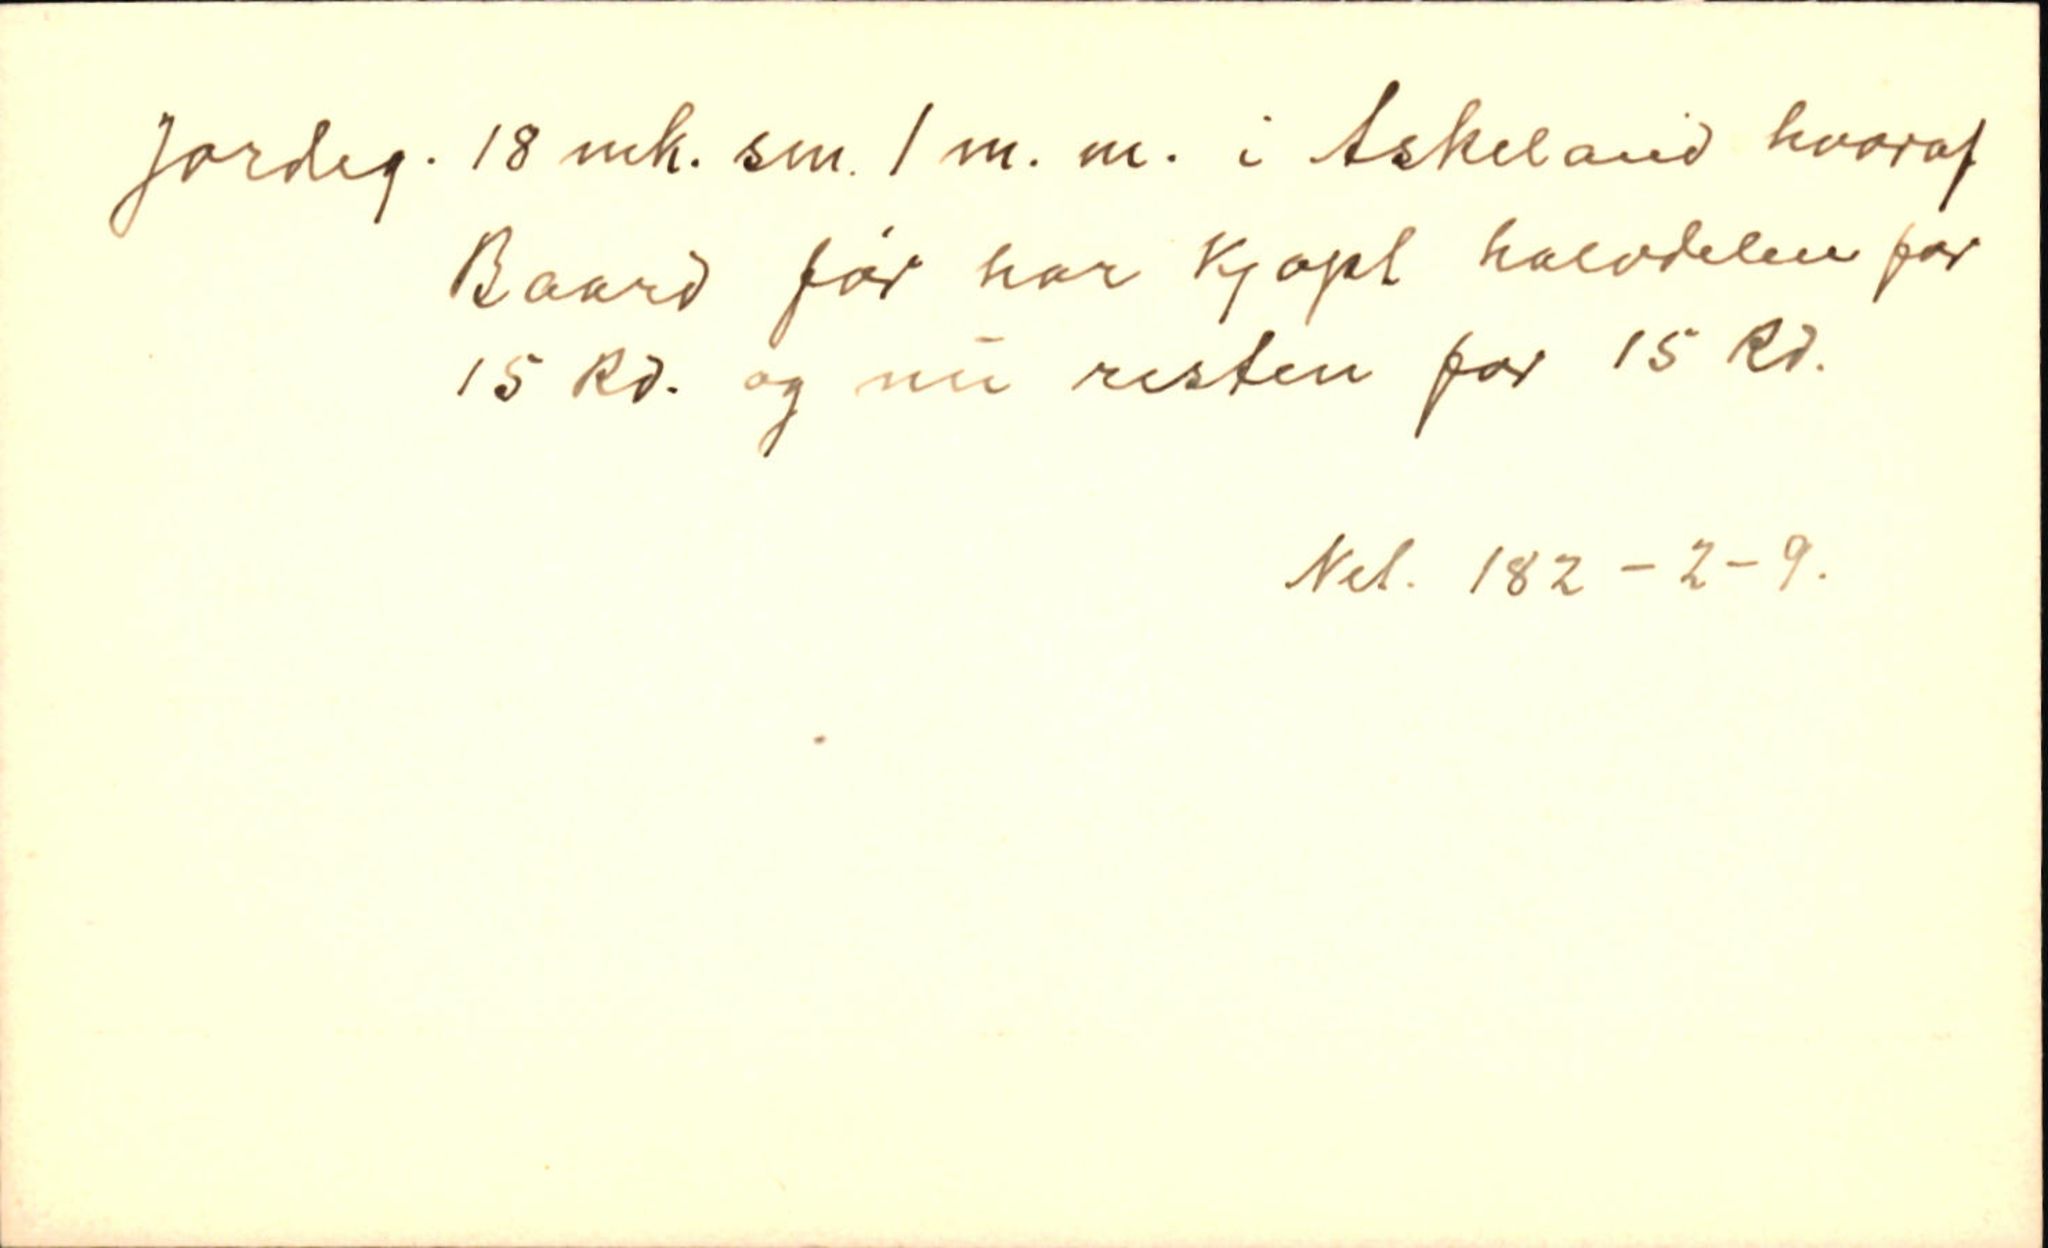 Jordeg. 18 mk. sm. 1 m. m. i Askeland hvoraf
Baard før har kjøpt halvdelen for
15 Rd. og nu resten for 15 Rd.
Nel. 182-2-9.